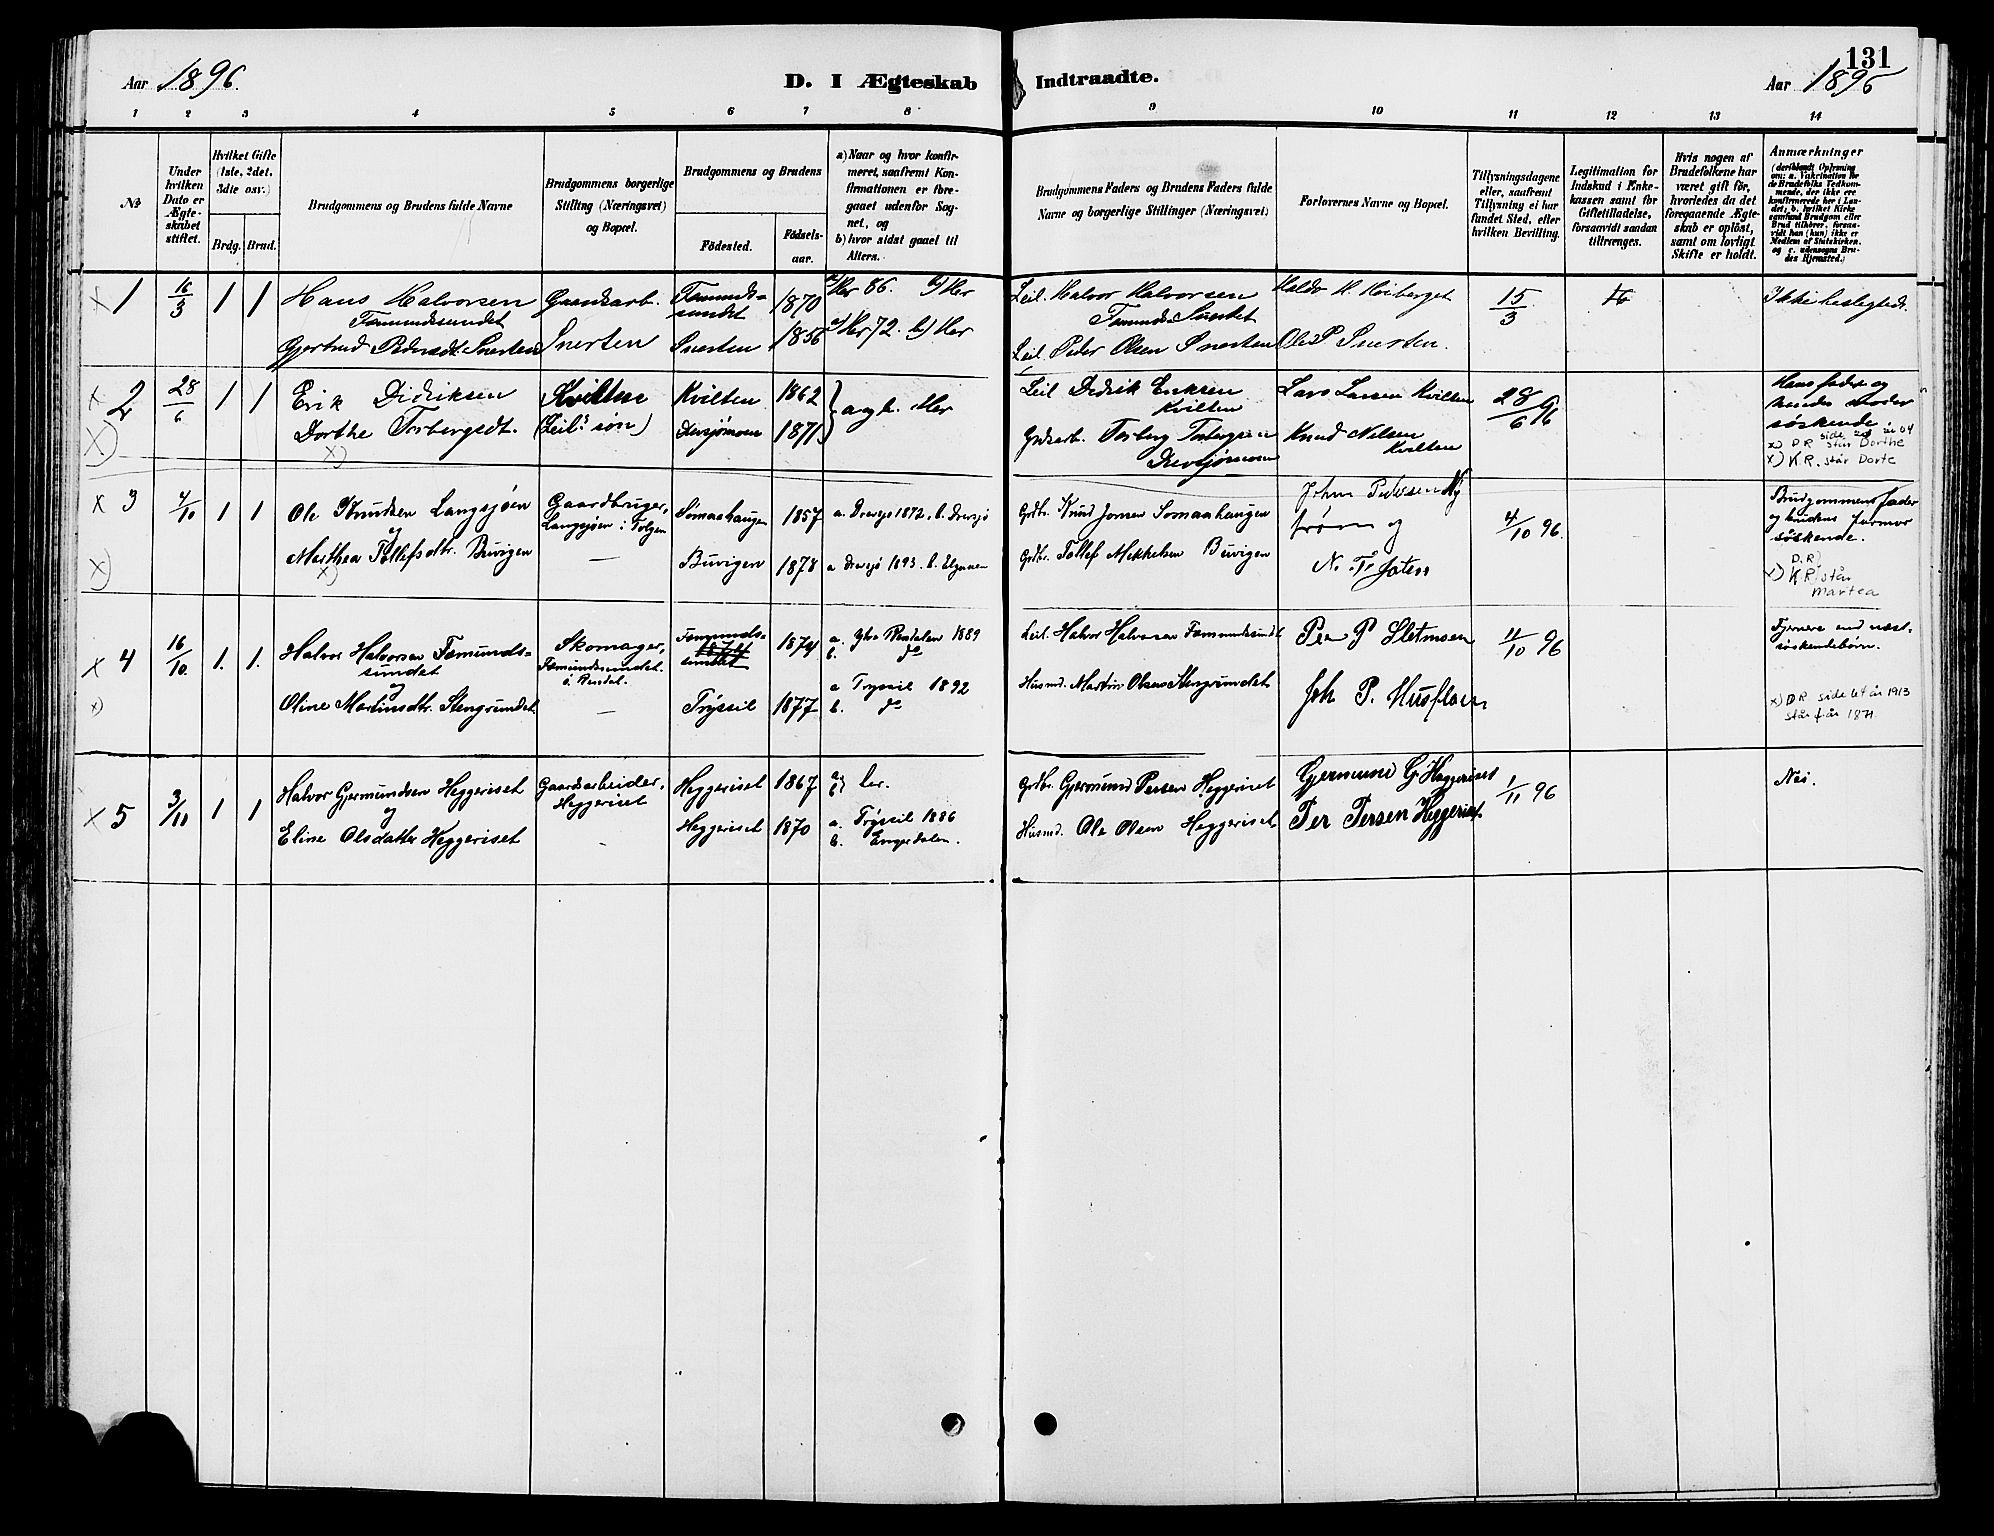 131
Aar 1896.
D. I Ægteskab
Indtraadte.
Aar 1896
1 2 3 4 5 6 7 8 9 10 11 12 13 14
No
Under hvilken Dato er Ægte-skabet stiftet.
Hvilket Gifte (1ste, 2det, 3die osv.)
Brdg. Brud.
Brudgommens og Brudens fulde Navne
Brudgommens borgerlige Stilling (Næringsvei) og Bopæl.
Brudgommens og Brudens
Födested.
Födsels-aar.
a) Naar og hvor konfir-meret, saafremt Kon-firmationen er fore-gaaet udenfor Sog-net, og
b) hvor sidst gaaet til Alters.
Brudgommens Faders og Brudens Faders fulde Navne og borgerlige Stillinger (Næringsvei)
Forlovernes Navne og Bopæl.
Tillysningsdagene eller, saafremt Tillysning ei har fundet Sted, eller hvilken Bevilling.
Legitimation for Indskud i Ænke-kassen samt for Giftetilladelse, forsaavidt saadan tiltrænges.
Hvis nogen af Brudefolkene har været gift før, hvorledes da det foregaaende Ægte-skab er opløst, samt om lovligt Skifte er holdt.
Anmærkninger
x 1 16/3 1 1
Hans Halvorsen Gaardsarb. Fæmunds-sundet 1870 a) Her 86. b) Her
Fæmundsundet
Gjertrud Pedersdt. Snerten Snerten Snerten 1856 a) Her 72. b) Her
Leil. Halvor Halvorsen Haldo H. Høiberget 15/3 Ikke beslegtede.
Fæmunds Sundet
Leil. Peder Olsen Snerten Ole P Snerten.
x 2 28/6 1 1
x)
Erik Didriksen Kvilten Kvilten 1862 a og b. Her
Dorthe Torbergsdt. (Leil.s søn) Drevsjømoen 1871
x)
Leil Didrik Eriksen Lars Larsen Kvilten 28/6 96
Kvilten
Grdsarb. Torberg Torbergsen Knud Nilsen
Drevsjømoen Kvilten
Hans fader og
hendes moder
søskende
x) D.R side 28 år 04 står Dorthe
x) K.R. står Dorte
x 3 4/10 1 1
x)
Ole Knudsen Langsjøen Gaardbruger, Sømaahaugen 1857 a. Drevsjø 1872, b. Drevsjø
og Langsjøen i Tolgen
Marthea Tollefsdtr. Buvigen — Buvigen 1878 a Drevsjø 1893. b. Elgaaen
x)
Grdbr. Knud Jonsen Sømaahaugen John Pedersen Ny
strøm og 4/10 96.
Grdbr. Tollef Mikkelsen Buvigen
Brudgommens fader
og brudens farmor
søskende.
x) D.R, K.R, står
Martea
x 4 16/10. 1. 1.
x)
Halvor Halvorsen Fæmunds- Skomager, Fæmunds-sundet 1874 a. Ytre Rendalen 1889
sundet Fæmundsundet b. do
og ø. Rendal.
Oline Martinusdtr. Stengrundet. — Trysil 1877 a Trysil 1892
b. do
Leil. Halvor Halvorsen Fæmundsundet Per P Sletmoen 4/10 96
Husmd. Martin Olsen Stengrundet Joh P. Husfloen
Fjernere end næst-
søskendebørn.
x) DR side let år 1913
står f. år 1871.
x 5 3/11 1 1
Halvor Gjermundsen Heggeriset Gaardsarbeider, Heggeriset 1867 a) b) her.
og Heggeriset
Eline Olsdatter Heggeriset — Heggeriset 1870 a. Trysil 1886
b. Engerdalen.
Grdbr. Gjermund Persen Heggeriset Gjermund G Heggeriset 1/11 96 Nei.
Husmd. Ole Olsen Heggeriset Per Persen Heggeriset